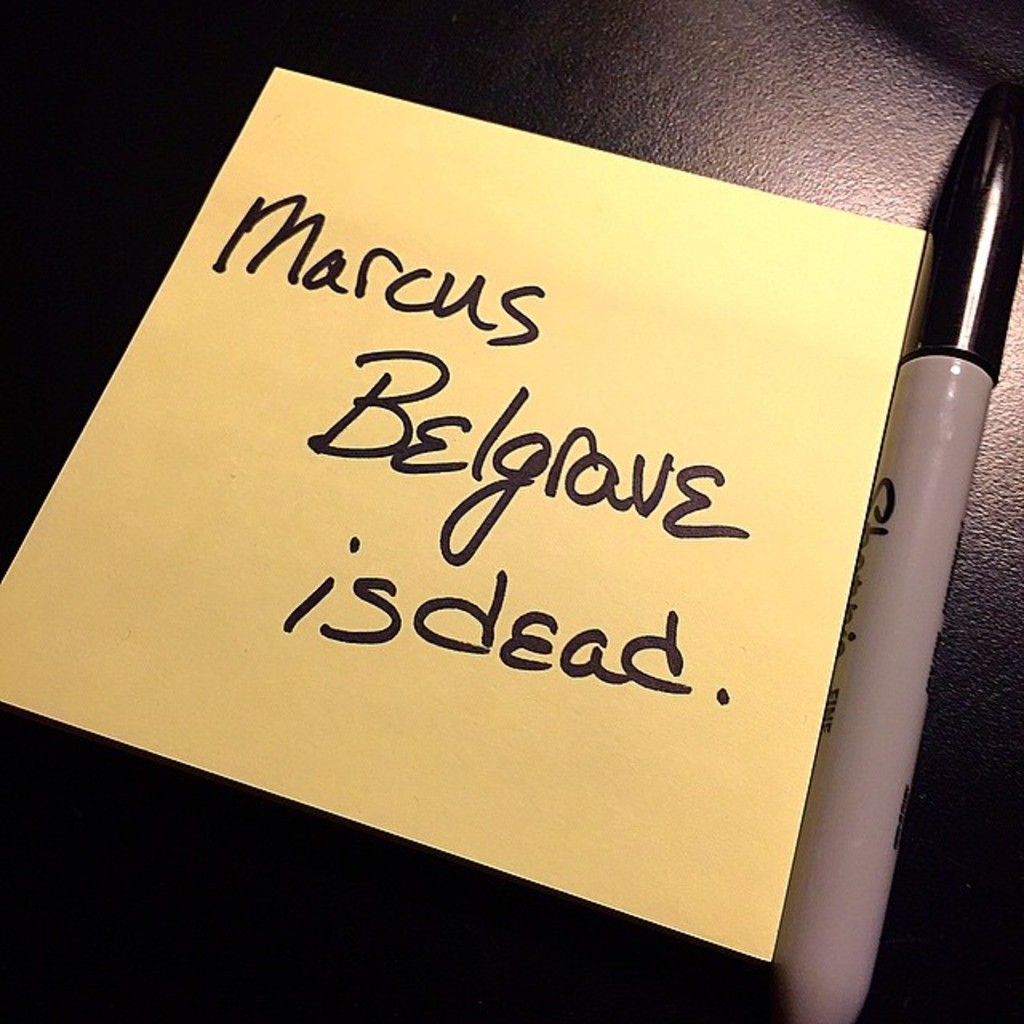 Marcus
Belgrave
is dead.
Sharpie
FINE